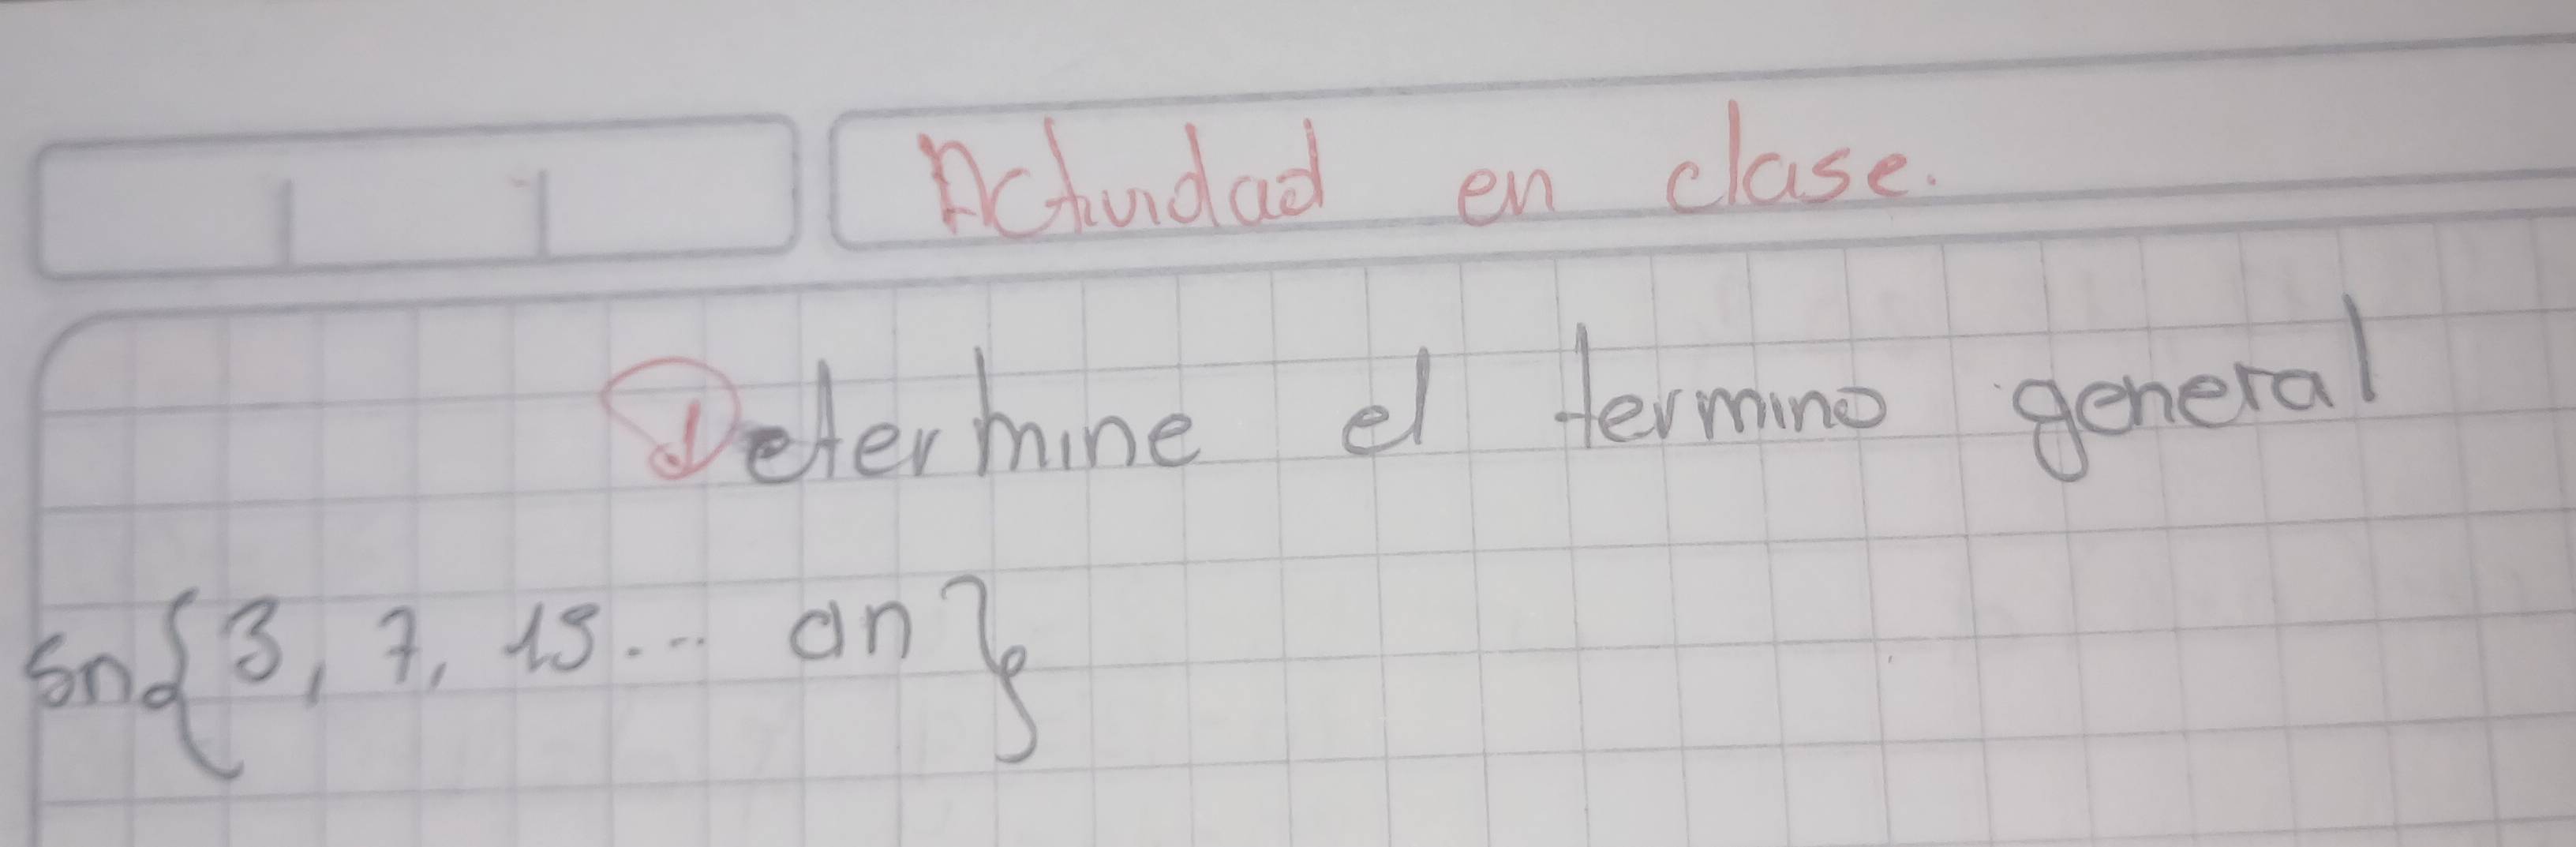 Actividad en clase.
Determine el termino general
Sn{3, 7, 13... an}